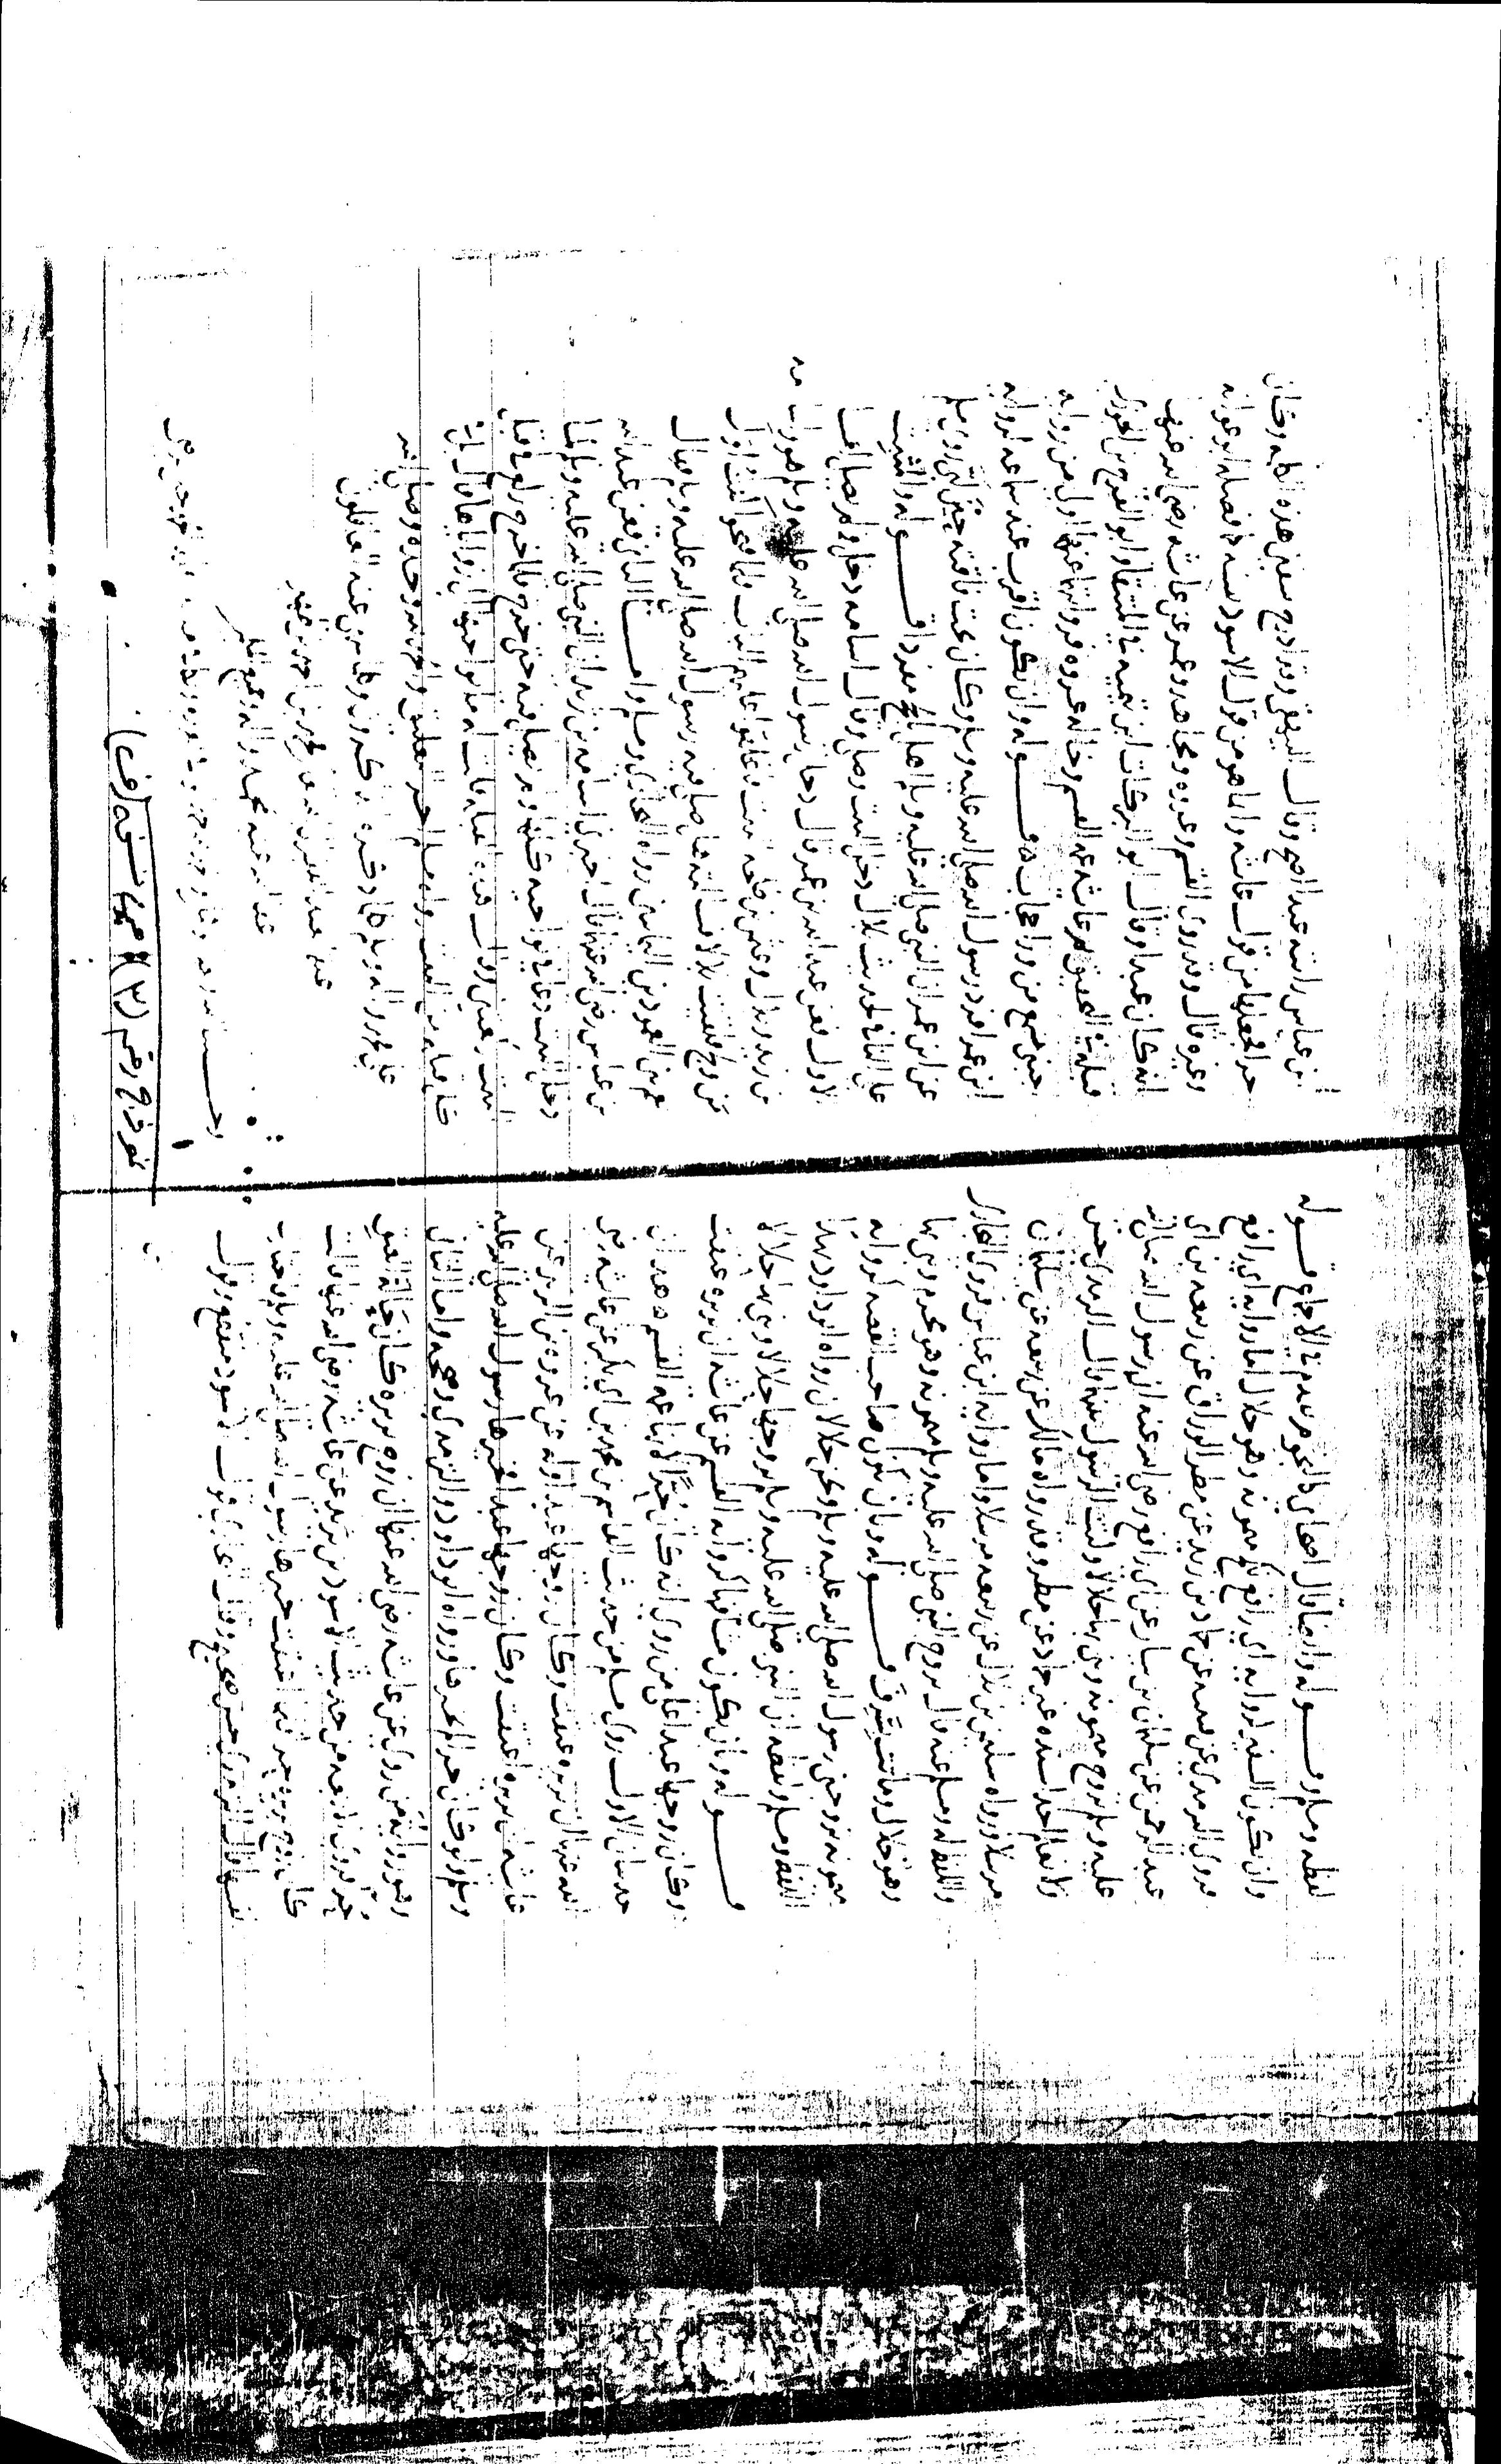 لفظه ومسلم قوله وايضا قال اصحابي كالنجوم تقدم في الاجماع قوله
وان يكون السفير كرواية ابي رافع نكح ميمونة وهو حلال اما رواية ابي رافع
فروى الترمذي عن قتيبة عن حماد بن زيد عن مطر الوراق عن ربيعة بن ابي
عبد الرحمن عن سليمان بن يسار عن ابي رافع رضي الله عنه ان رسول الله صلى الله
عليه وسلم تزوج ميمونة وبنى بها حلالا وكنت الرسول بينهما قال الترمذي حسن
ولا نعلم احدا اسنده غير حماد عن مطر وقد رواه مالك عن ربيعة عن سليمان
مرسلا ورواه سليمن بن بلال عن ربيعة مرسلا واما رواية ابن عباس فروى البخاري
واللفظ له ومسلم عنه قال تزوج النبي صلى الله عليه وسلم ميمونة وهو محرم وبنى بها
وهو حلال وماتت بسرف قوله وبان يكون صاحب القصة كرواية
ميمونة تزوجني رسول الله صلى الله عليه وسلم ونحن حلالان رواه ابو داود بهذا
اللفظ ومسلم ولفظه ان النبي صلى الله عليه وسلم تزوجها حلالا وبنى بها حلالا
قوله وبان يكون مشافها كرواية القسم عن عائشة ان بريرة عتقت
وكان زوجها عبدا على من روى انه كان حرا لانها عمة القسم هذان
حديثان الاول روى مسلم من حديث القاسم بن محمد بن ابي بكر عن عائشة رضي
الله عنها ان بريرة عتقت وكان زوجها عبدا وله عن عروة بن الزبير عن
عائشة ان بريرة اعتقت وكان زوجها عبدا فخيرها رسول الله صلى الله عليه
وسلم ولو كان حرا لم يخيرها ورواه ابو داود والترمذي وصححه واما الثاني
وهو رواية من روى عن عائشة رضي الله عنها ان زوج بريرة كان حالة العتق
حر فروى الاربعة من حديث الاسود بن يزيد عن عائشة رضي الله عنها قالت
كان زوج بريرة حرا فلما اعتقت خيرها رسول الله صلى الله عليه وسلم فاختارت
نفسها قال الترمذي حسن صحيح وقال البخاري قول الاسود منقطع وقول
ابن عباس رايته عبدا اصح وقال البيهقي وقد ادرج بعض هذه اللفظة وكان
حرا فجعلها من قول عائشة وانما هو من قول الاسود بينه وفصله ابو عوانة
وغيره قال وقد روى القسم وعروة ومجاهد وعمرة عن عائشة رضي الله عنها
انه كان عبدا وقال ابو البركات ابن تيمية في المنتقى وابو الفرج بن الجوزي
قبله في التحقيق ثم عائشة عمة القسم وخالة عروة فروايتهما عنها اولى من رواية
اجنبي يسمع من وراء حجاب ه قوله وان يكون اقرب عند سماعه كرواية
ابن عمر افرد رسول الله صلى الله عليه وسلم وكان تحت ناقته حين لبى روى مسلم
عن ابن عمر ان النبي صلى الله عليه وسلم اهل بالحج مفردا قوله والمثبت
على النافي كحديث بلال دخل البيت وصلى وقال اسامة دخل ولم يصل اما
الاول فعن عبد الله بن عمر قال دخل رسول الله صلى الله عليه وسلم هو واسامة
بن زيد وبلال وعثمن بن طلحة البيت فاغلقوا عليهم الباب فلما فتحوا كنت اول
من ولج فلقيت بلالا فسالته هل صلى فيه رسول الله صلى الله عليه وسلم قال
نعم بين العمودين اليمانيين رواه البخاري ومسلم واما الثاني فعن عبد الله
بن عباس رضي الله عنهما قال اخبرني اسامة بن زيد ان النبي صلى الله عليه وسلم لما
دخل البيت دعا في نواحيه كلها ولم يصل فيه حتى خرج فلما خرج ركع في قبل
البيت ركعتين وقال هذه القبلة قلت له ما نواحيها افي زواياها قال بل
في كل قبلة من البيت رواه مسلم اخر التعليق والحمد لله وحده وصلى الله
على محمد واله وسلم كلما ذكره الذاكرون وغفل عن الغافلون
عفا الله عنه بمحمد واله
نموذج رقم (٢) من نسخة (ف)